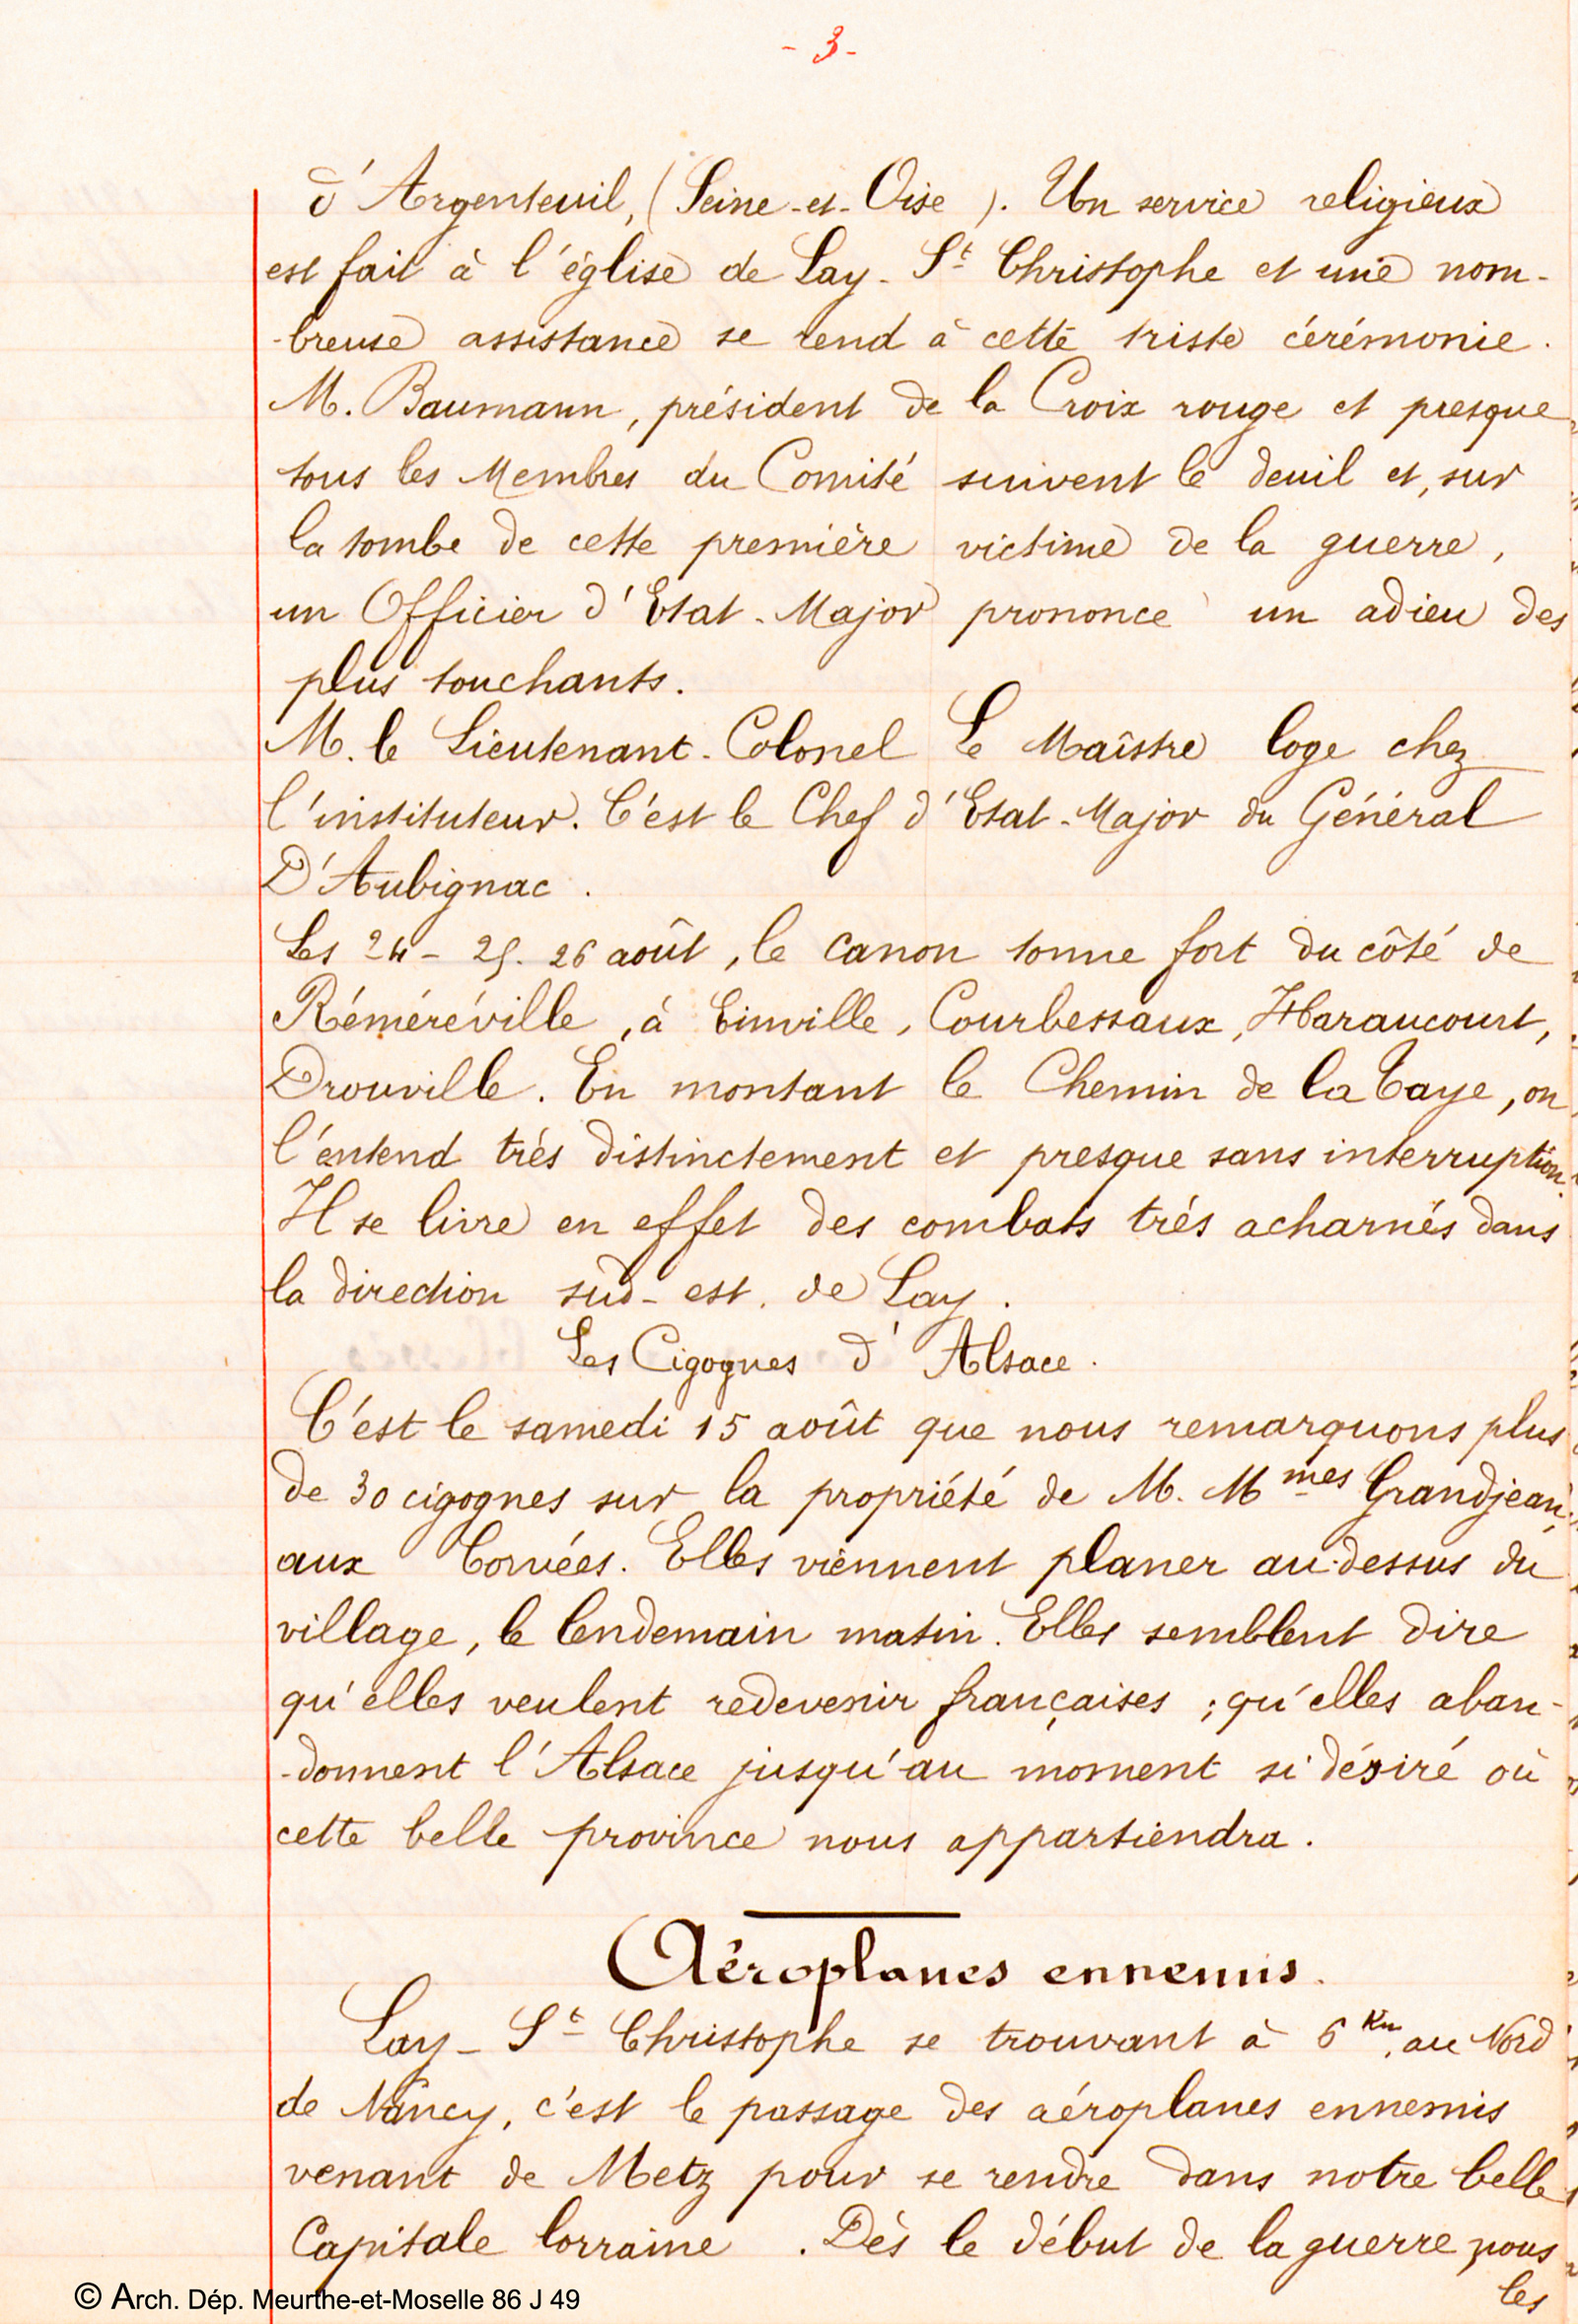 - 3 -
d'Argenteuil, (Seine-et-Oise). Un service religieux
est fait à l'église de Lay-St Christophe et une nom-
-breuse assistance se rend à cette triste cérémonie.
M. Baumann, président de la Croix rouge et presque
tous les Membres du Comité suivent le deuil et, sur
la tombe de cette première victime de la guerre,
un Officier d'Etat-Major prononce un adieu des
plus touchants.
M. le Lieutenant-Colonel Le Maîstre loge chez
l'instituteur. C'est le Chef d'Etat-Major du Général
D'Aubignac.
Les 24 - 25 - 26 août, le canon tonne fort du côté de
Réméréville, à Einville, Courbessaux, Haraucourt,
Drouville. En montant le Chemin de la Taye, on
l'entend très distinctement et presque sans interruption.
Il se livre en effet des combats très acharnés dans
la direction sud-est de Lay.
Les Cigognes d'Alsace.
C'est le samedi 15 août que nous remarquons plus
de 30 cigognes sur la propriété de M. Mmes Grandjean,
aux Corvées. Elles viennent planer au-dessus du
village, le lendemain matin. Elles semblent dire
qu'elles veulent redevenir françaises ; qu'elles aban-
-donnent l'Alsace jusqu'au moment si désiré où
cette belle province nous appartiendra.
Aéroplanes ennemis.
Lay-St Christophe se trouvant à 6 Km. au Nord
de Nancy, c'est le passage des aéroplanes ennemis
venant de Metz pour se rendre dans notre belle
Capitale lorraine. Dès le début de la guerre nous
les
© Arch. Dép. Meurthe-et-Moselle 86 J 49